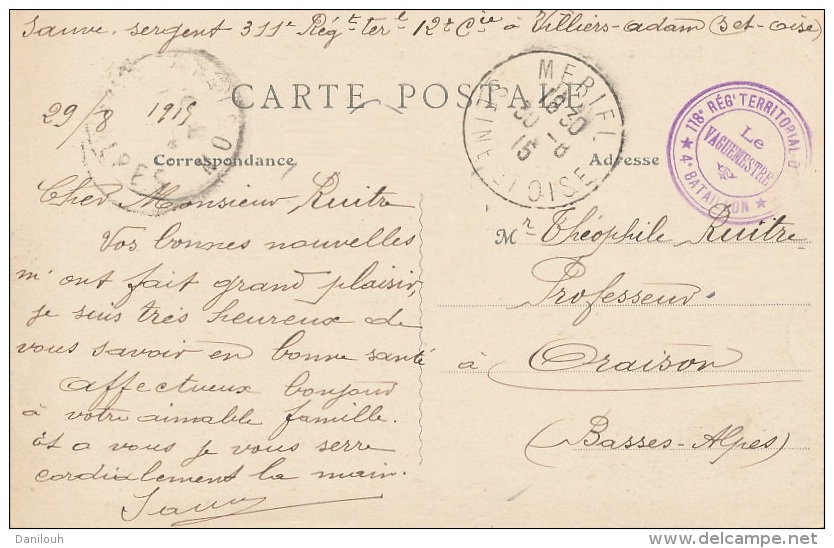 Sauve. sergent 311e Régt terl 12e Cie à Villiers-adam (Set-oise)
29/8 1915
CARTE POSTALE
MERIEL
18 30
30 -8
15
118e RÉGt TERRITORIAL D
Le
VAGUEMESTRE
★ 4e BATAILLON ★
Correspondance
Adresse
Cher Monsieur Ruitre
Vos bonnes nouvelles
m'ont fait grand plaisir,
je suis très heureux de
vous savoir en bonne santé
affectueux bonjour
à votre aimable famille.
Et a vous je vous serre
cordialement la main.
Sauve
Mr Théophile Ruitre
Professeur.
à Oraison
(Basses-Alpes)
Danilouh
www.delcampe.net